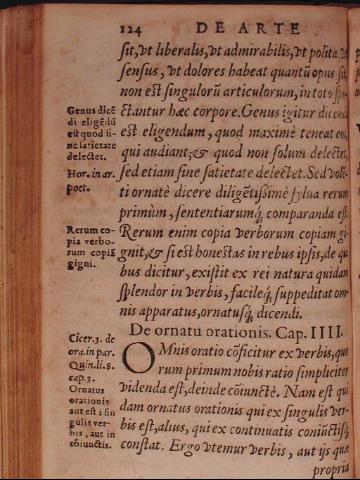 124 DE ARTE
sit, vt liberalis, vt admirabilis, vt polita, vt
sensus, vt dolores habeat quantũ opus sit,
non est singulorũ articulorum, in toto spe-
ctantur hæc corpore. Genus igitur dicendi
est eligendum, quod maximè teneat eos,
qui audiant; & quod non solum delectet,
sed etiam sine satietate delectet. Sed volē-
ti ornatè dicere diligētissimè sylua rerum
primùm, sententiarumq́; comparanda est.
Rerum enim copia verborum copiam gi-
gnit, & si est honestas in rebus ipsis, de qui
bus dicitur, existit ex rei natura quidam
splendor in verbis, facileq́; suppeditat om-
nis apparatus, ornatusq́; dicendi.
Genus dicē
di eligēdũ
est quod si-
ne satietate
delectet.
Hor. in ar.
poet.
Rerum co-
pia verbo-
rum copiã
gigni.
De ornatu orationis. Cap. IIII.
OMnis oratio cõficitur ex verbis, quo
rum primum nobis ratio simpliciter
videnda est, deinde cõiunctè. Nam est qui
dam ornatus orationis qui ex singulis ver-
bis est, alius, qui ex continuatis coniũctisq́;
constat. Ergo vtemur verbis, aut ijs quæ
propria
Cicer. 3. de
ora. in par.
Quin. li. 8.
cap. 3.
Ornatus
orationis
aut est ī sin
gulis ver-
bis, aut in
cõiunctis.